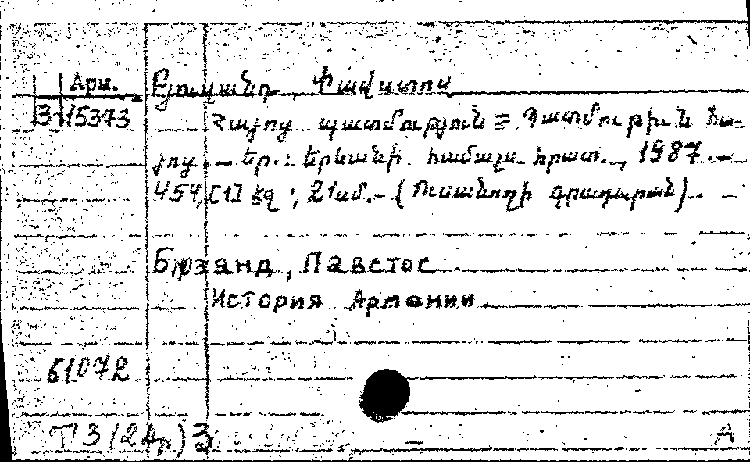 Арм.
3-15373
Բյուզանդ, Փավստոս
Հայոց պատմություն = Պատմութիւն Հա-
յոց. — Եր.: Երևանի համալս. հրատ., 1987. —
454, [1] էջ ; 21սմ. — (Ուսանողի գրադարան).
Бюзанд, Павстос
История Армении
51072
Т3(2Ар)3
А